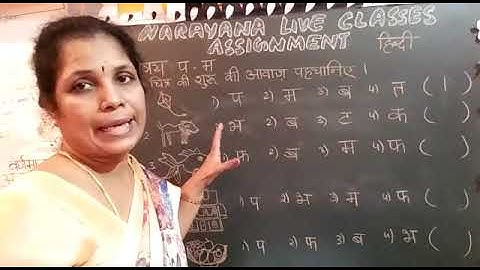 NARAYANA LIVE CLASSES
ASSIGNMENT हिन्दी
प - म
चित्र की शुरू की आवाज़ पहचानिए ।
1) प 2) म 3) ब 4) त ( 1 )
2. भ 2) ब 3) ट 4) क ( )
3. फ 2) ब 3) म 4) फ ( )
1) प 2) भ 3) म 4) फ ( )
1) प 2) फ 3) ब 4) भ ( )
वर्णमा